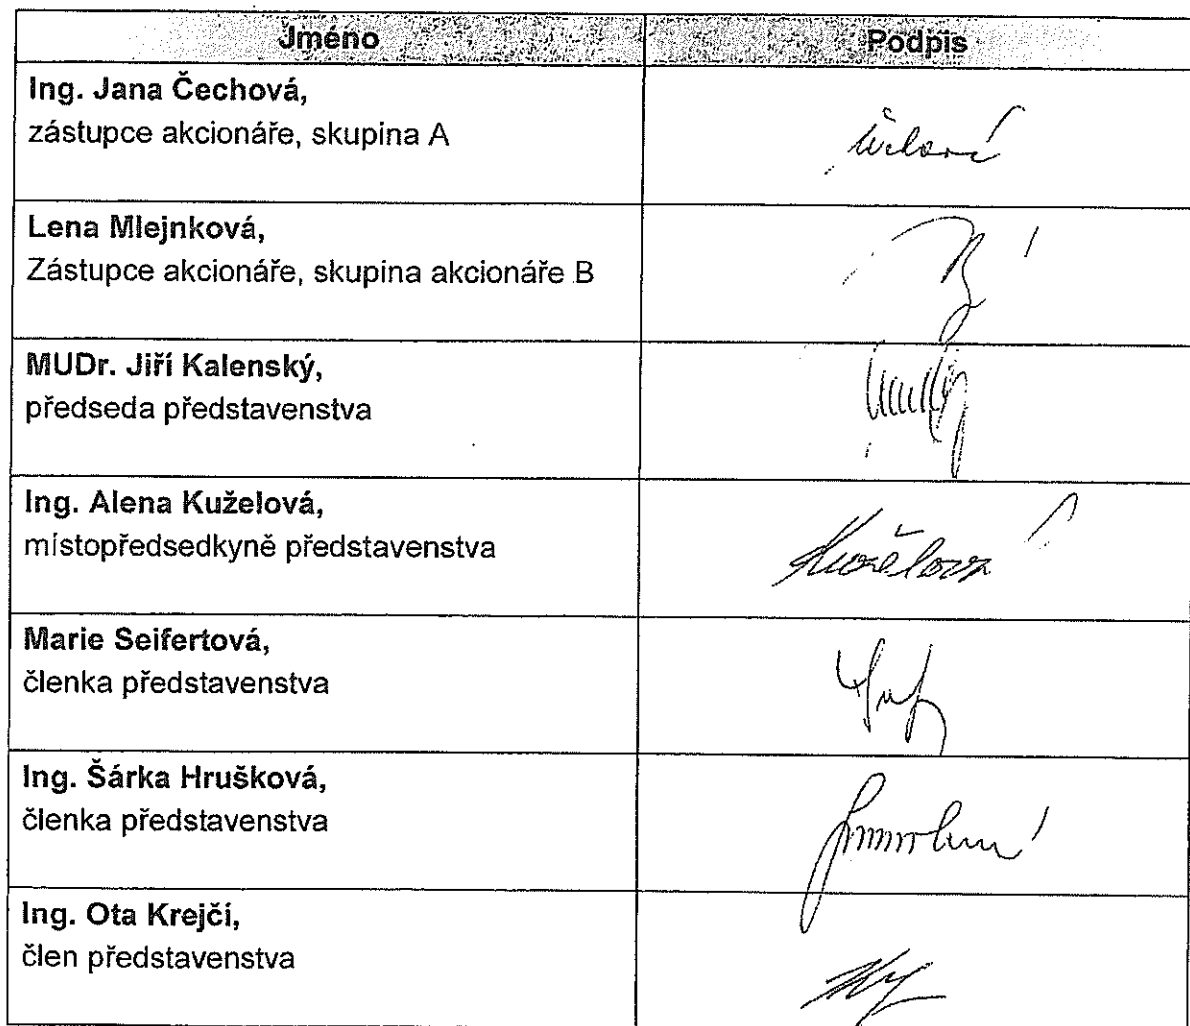 Jméno Podpis
Ing. Jana Čechová,
zástupce akcionáře, skupina A
Lena Mlejnková,
Zástupce akcionáře, skupina akcionáře B
MUDr. Jiří Kalenský,
předseda představenstva
Ing. Alena Kuželová,
místopředsedkyně představenstva
Marie Seifertová,
členka představenstva
Ing. Šárka Hrušková,
členka představenstva
Ing. Ota Krejčí,
člen představenstva